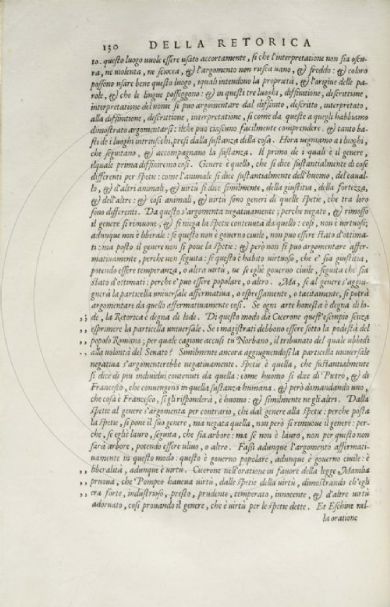 130 DELLA RETORICA
to. questo luogo vuole essere usato accortamente, si che l'interpretatione non sia oscu-
ra, ne violenta, ne sciocca, & l'argomento non riesca vano, & freddo: & coloro
possono usare bene questo luogo, i quali intendono la proprietà, & l'origine delle pa-
role, & che le lingue posseggono: & in questi tre luoghi, diffinitione, descrittione,
interpretatione del nome si puo argomentare dal diffinito, descritto, interpretato,
alla diffinitione, descrittione, interpretatione, si come da queste a quegli habbiamo
dimostrato argomentarsi: il che può ciascuno facilmente comprendere. & tanto ba-
sti de i luoghi intrinsechi, presi dalla sustanza della cosa. Hora vegniamo a i luoghi,
che seguitano, & accompagnano la sustanza. Il primo de i quali è il genere,
il quale prima diffiniremo così. Genere è quello, che si dice sustantialmente di cose
differenti per spetie: come l'animale si dice sustantialmente dell'huomo, del caval-
lo, & d'altri animali, & virtù si dice similmente, della giustitia, della fortezza,
& dell'altre: & così animali, & virtù sono generi di quelle spetie, che tra loro
sono differenti. Da questo s'argomenta negativamente; perche negato, & rimosso
il genere si rimuove, & si niega la spetie contenuta da quello: così, non è virtuoso;
adunque non è liberale: se questo non è governo civile, non può essere stato d'ottima-
ti: ma posto il genere non si pone la spetie: & però non si puo argomentare affer-
mativamente, perche non seguita: se questo è habito virtuoso, che e' sia giustitia,
potendo essere temperanza, o altra virtù, ne se egli è governo civile, seguita che sia
stato d'ottimati: perche e' puo essere popolare, o altro. Ma, se al genere s'aggiu-
gnerà la particella universale affermativa, o espressamente, o tacitamente, si potrà
argomentare da quello affermativamente così. Se ogni arte honesta è degna di lo-
,, de, la Retorica è degna di lode. Di questo modo da Cicerone quest'esempio senza
,, esprimere la particella universale. Se i magistrati debbono essere sotto la podestà del
,, popolo Romano; per quale cagione accusi tu Norbano, il tribunato del quale ubbidì
,, alla volontà del Senato? Similmente ancora aggiugnendosi la particella universale
negativa s'argomenterebbe negativamente. Spetie è quella, che sustantialmente
si dice di piu individui contenuti da quella: come huomo si dice di Pietro, & di
Francesco, che convengono in quella sustanza humana. & però domandando uno,
che cosa è Francesco, si gli risponderà, è huomo: & similmente negli altri. Dalla
spetie al genere s'argomenta per contrario, che dal genere alla spetie: perche posta
la spetie, si pone il suo genere, ma negata quella, non però si rimuove il genere: per-
che, se egli è lauro, seguita, che sia arbore: ma se non è lauro, non per questo non
sarà arbore, potendo essere ulivo, o altro. Fassi adunque l'argomento affermati-
vamente in questo modo. questo è governo popolare, adunque è governo civile: è
,, liberalità, adunque è virtù. Cicerone nell'oratione in favore della legge Manilia
,, provava, che Pompeo haveva virtù, dalle spetie della virtù, dimostrando ch'egli
,, era forte, industrioso, presto, prudente, temperato, innocente, & d'altre virtù
adornato, così provando il genere, che è virtù per le spetie dette. Et Eschine nel-
la oratione